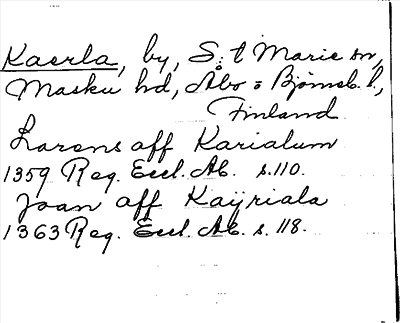 Kaerla, by, S:t Marie sn,
Masku hd, Åbo = Björneb. l.,
Finland
Larens aff Karialum
1359 Reg. Eccl. Ab. s.110.
Joan aff Kaÿriala
1363 Reg. Eccl. Ab. s. 118.